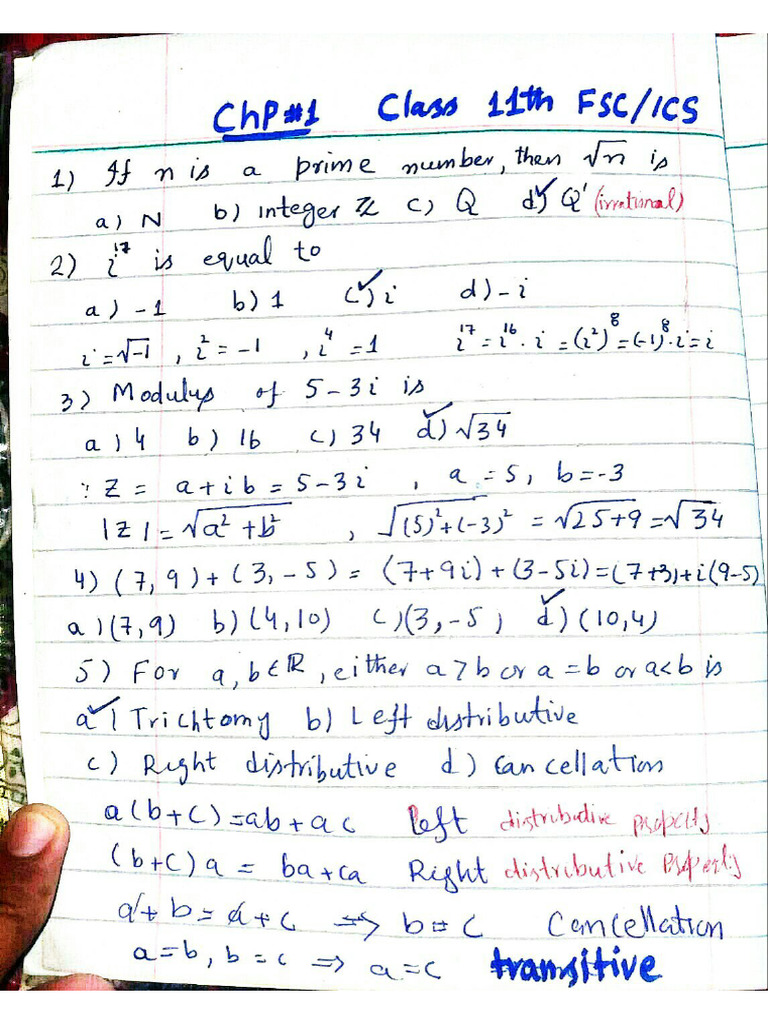 ChP#1 Class 11th FSC/ICS
1) If n is a prime number, then √n is
a) N b) integer Z c) Q d) Q' (irrational)
2) i¹⁷ is equal to
a) -1 b) 1 c) i d) -i
i = √-1 , i² = -1 , i⁴ = 1 i¹⁷ = i¹⁶ · i = (i²)⁸ = (-1)⁸ · i = i
3) Modulus of 5-3i is
a) 4 b) 16 c) 34 d) √34
∵ Z = a + ib = 5-3i , a = 5, b = -3
|Z| = √a² + b² , √(5)² + (-3)² = √25+9 = √34
4) (7, 9) + (3, -5) = (7+9i) + (3-5i) = (7+3)+i(9-5)
a) (7, 9) b) (4, 10) c) (3, -5) d) (10, 4)
5) For a, b ∈ ℝ, either a > b or a = b or a < b is
a) Trichtomy b) Left distributive
c) Right distributive d) Cancellation
a(b+c) = ab + ac Left distributive property
(b+c)a = ba+ca Right distributive Property
a + b = a + c ⇒ b = c Cancellation
a = b, b = c ⇒ a = c transitive